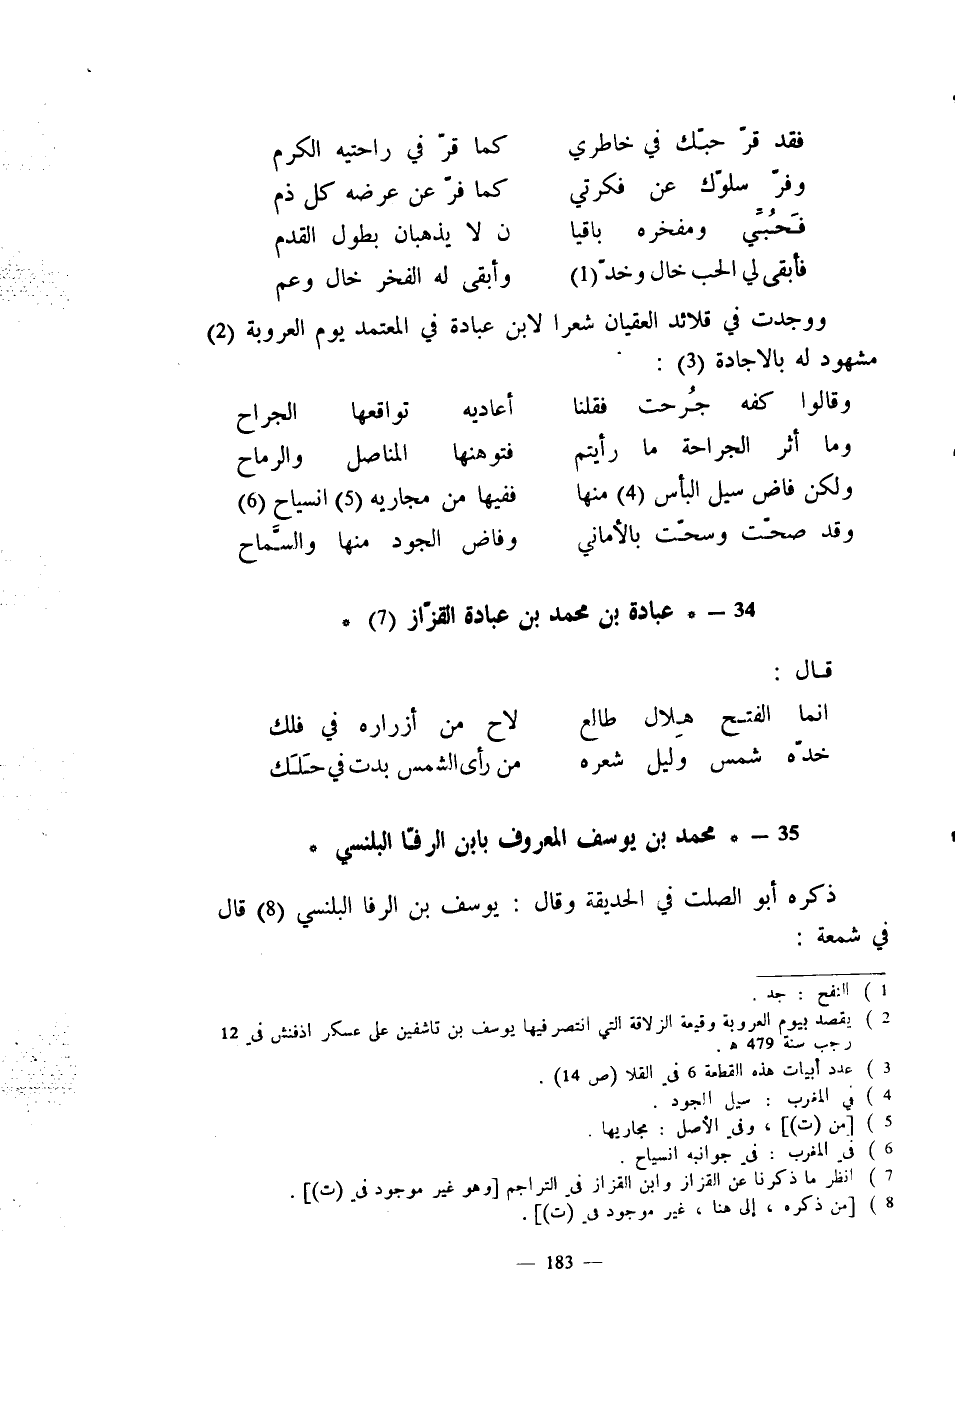 فقد قرّ حبّك في خاطري كما قرّ في راحتيه الكرم
وفرّ سلوّك عن فكرتي كما فرّ عن عرضه كل ذم
فَحُبِّي ومفخره باقيا ن لا يذهبان بطول القدم
فأبقى لي الحب خال وخدّ (1) وأبقى له الفخر خال وعم
ووجدت في قلائد العقيان شعرا لابن عبادة في المعتمد يوم العروبة (2)
مشهود له بالاجادة (3) :
وقالوا كفه جُرحت فقلنا أعاديه تواقعها الجراح
وما أثر الجراحة ما رأيتم فتوهنها المناصل والرماح
ولكن فاض سيل البأس (4) منها ففيها من مجاريه (5) انسياح (6)
وقد صحّت وسحّت بالأماني وفاض الجود منها والسَّماح
34 — * عبادة بن محمد بن عبادة القزّاز (7) *
قال :
انما الفتح هِلال طالع لاح من أزراره في فلك
خدّه شمس وليل شعره من رأى الشمس بدت في حَلَك
35 — * محمد بن يوسف المعروف بابن الرفّا البلنسي *
ذكره أبو الصلت في الحديقة وقال : يوسف بن الرفا البلنسي (8) قال
في شمعة :
1 ) النفح : جد .
2 ) يقصد بيوم العروبة وقيعة الزلاقة التي انتصر فيها يوسف بن تاشفين على عسكر اذفنش في 12
رجب سنة 479 ه .
3 ) عدد أبيات هذه القطعة 6 في القلا (ص 14) .
4 ) في المغرب : سيل الجود .
5 ) [من (ت)] ، وفي الأصل : مجاريها .
6 ) في المغرب : في جوانبه انسياح .
7 ) انظر ما ذكرنا عن القزاز وابن القزاز في التراجم [وهو غير موجود في (ت)] .
8 ) [من ذكره ، إلى هنا ، غير موجود في (ت)] .
— 183 —